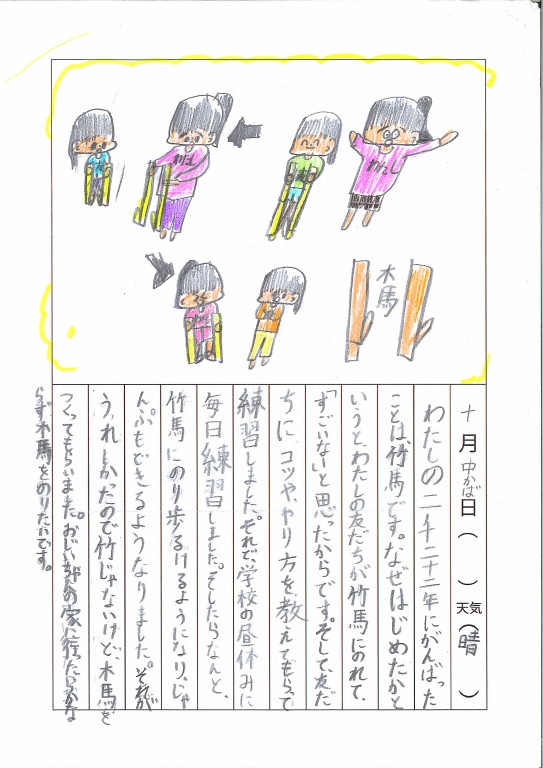 わたし
わたし
木馬
十月中かば日( )天気(晴)
わたしの二千二十二年にがんばった
ことは、竹馬です。なぜはじめたかと
いうと、わたしの友だちが竹馬にのれて、
「すごいな」と思ったからです。そして、友だ
ちに、コツや、やり方を、教えてもらって
練習しました。それで、学校の昼休みに
毎日練習しました。そしたらなんと、
竹馬にのり歩るけるようになり、じゃ
んぷもできるようなりました。それが
うれしかったので竹じゃないけど、木馬を
つくってもらいました。おじいちゃんの家に行ったらかな
らず木馬をのりたいです。